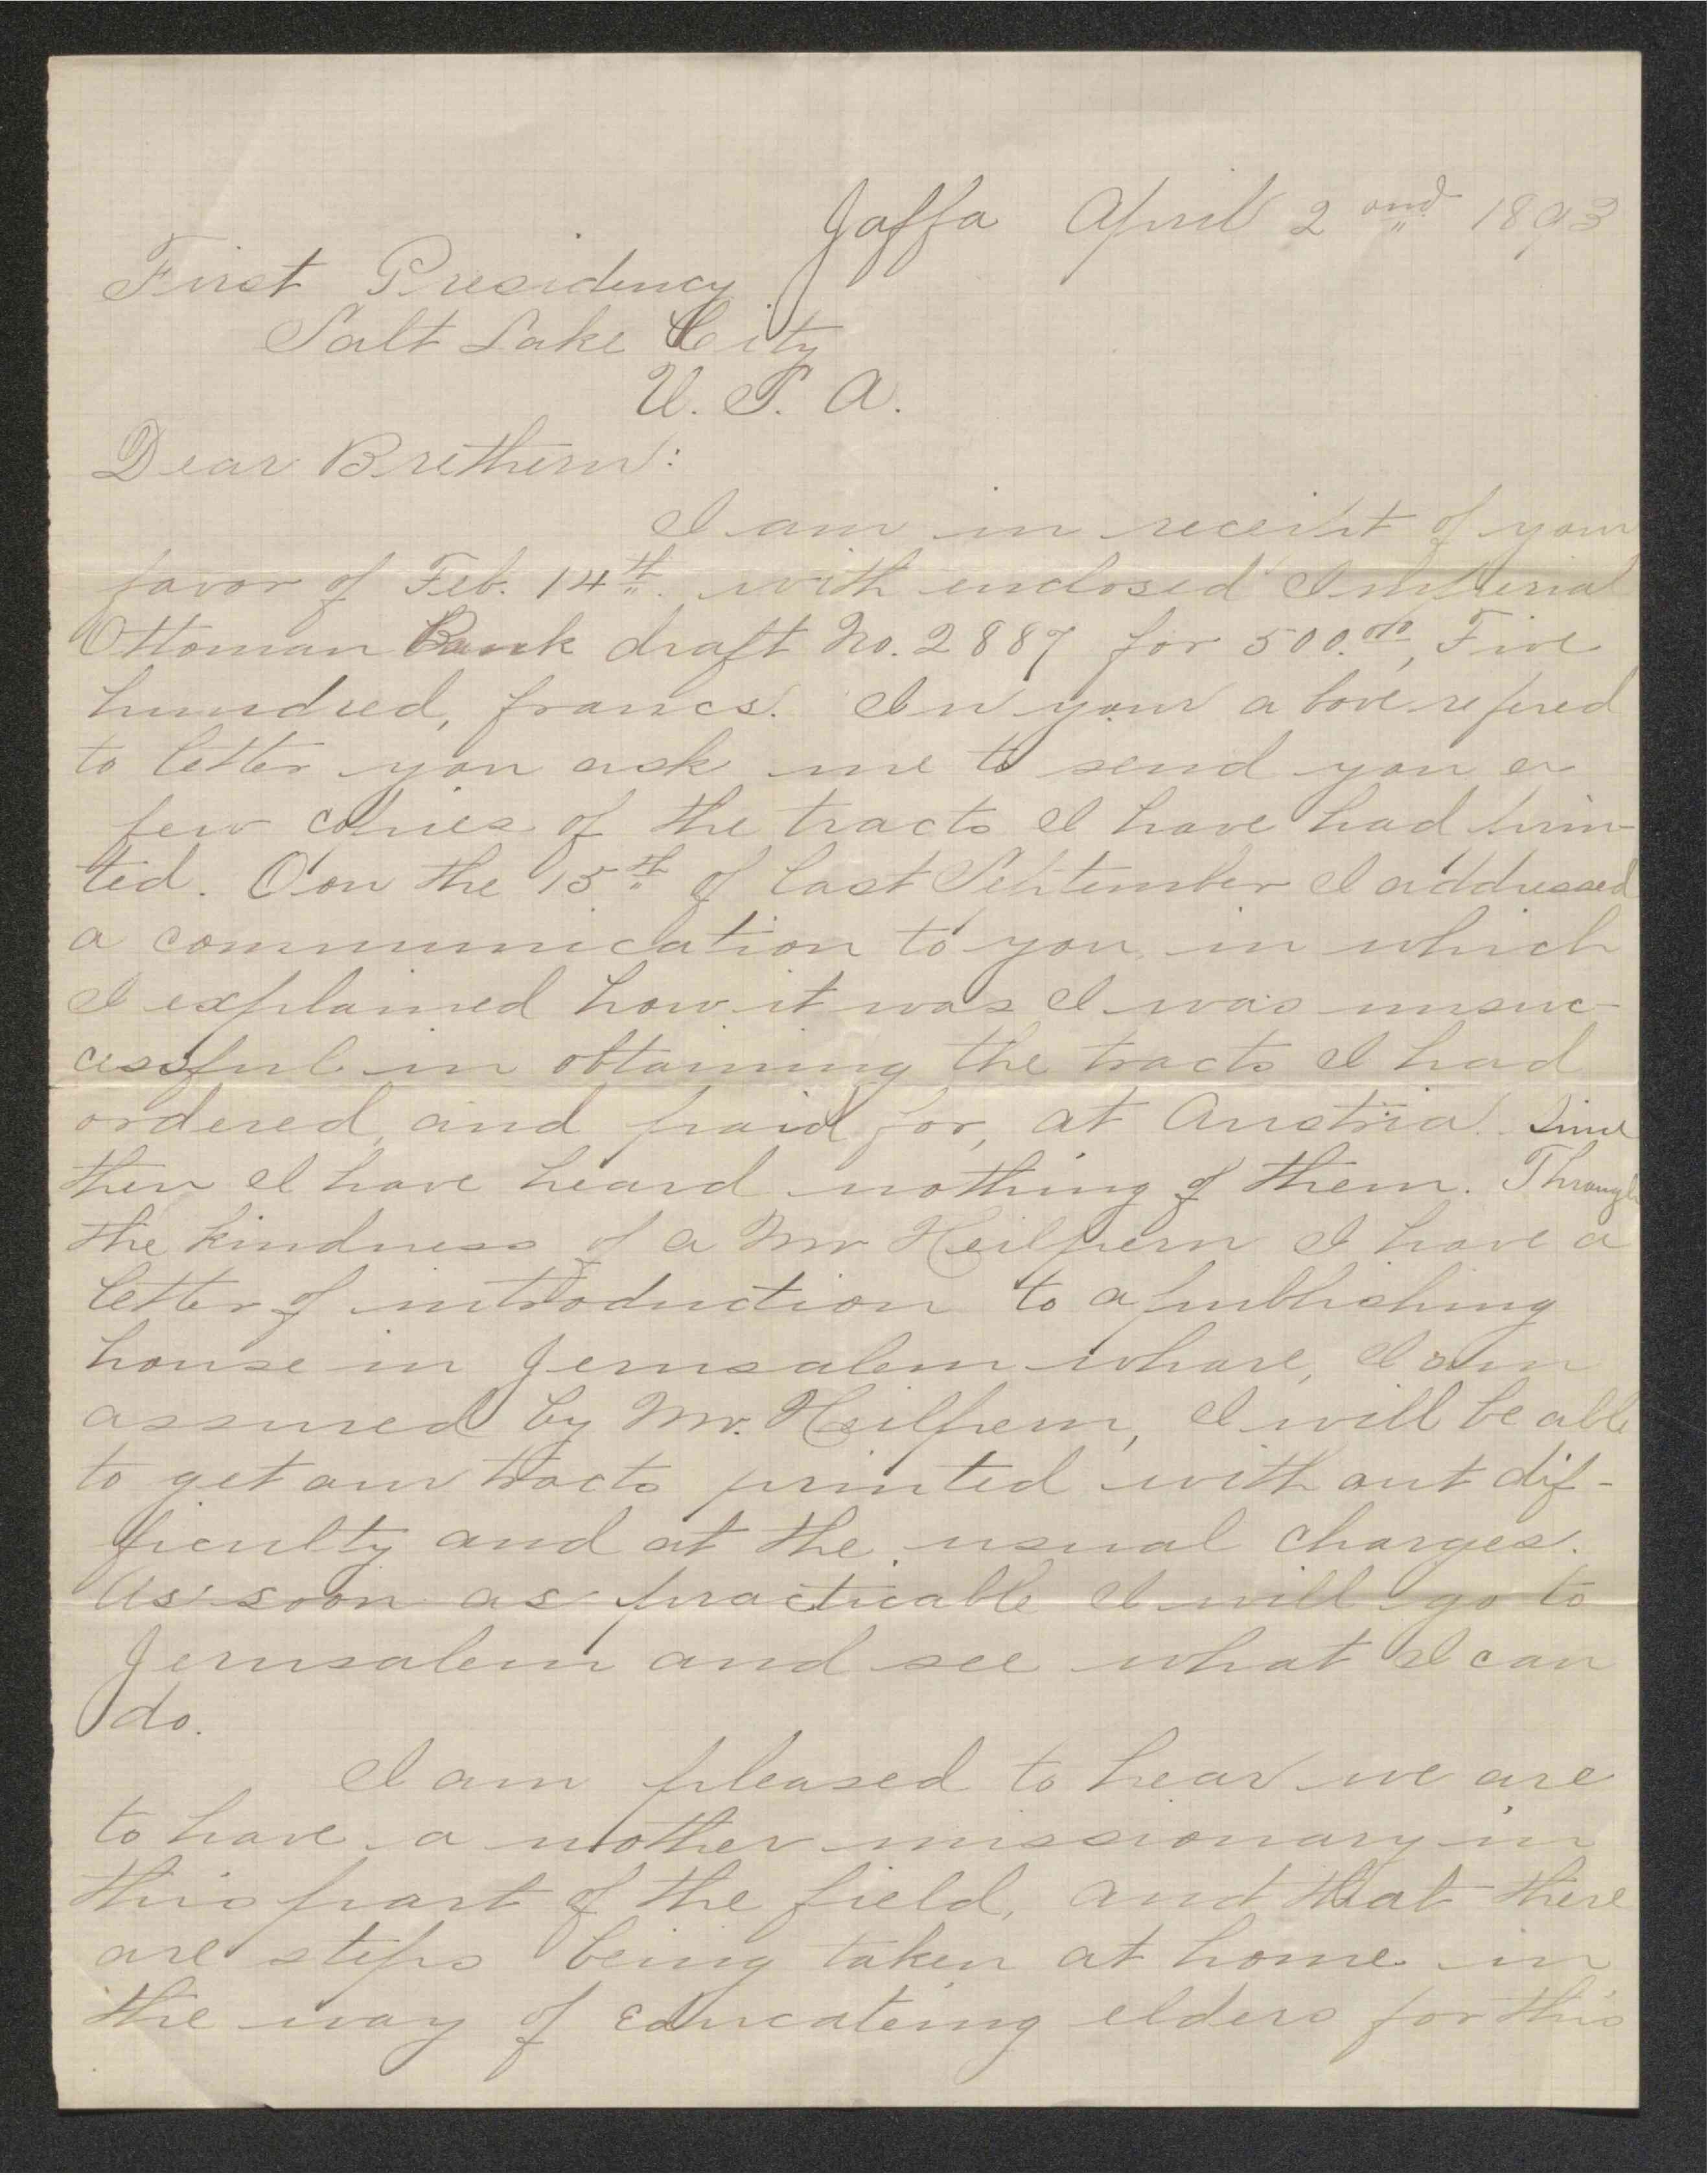 Jaffa April 2ond 1893
First Presidency
Salt Lake City
U. S. A.
Dear Brethern:
I am in receipt of your
favor of Feb. 14th. with enclosed Imperial
Ottoman Bank draft No. 2887 for 500.00, Five
hundred, francs. In your above refered
to letter you ask me to send you a
few copies of the tracts I have had prin-
ted. Oon the 15th of last September I addressed
a communication to you in which
I explained how it was I was unsuc-
cessful in obtaining the tracts I had
ordered, and paid for, at Austria. Since
then I have heard nothing of them. Through
the kindness of a Mr Heilpern I have a
letter of introduction to a publishing
house in Jerusalem whare, I am
assured by Mr. Heilpern, I will be able
to get our tracts printed with out dif-
ficulty and at the usual charges.
As soon as practicable I will go to
Jerusalem and see what I can
do.
I am pleased to hear we are
to have a nother missionary in
this part of the field, and that there
are steps being taken at home in
the way of educateing elders for this